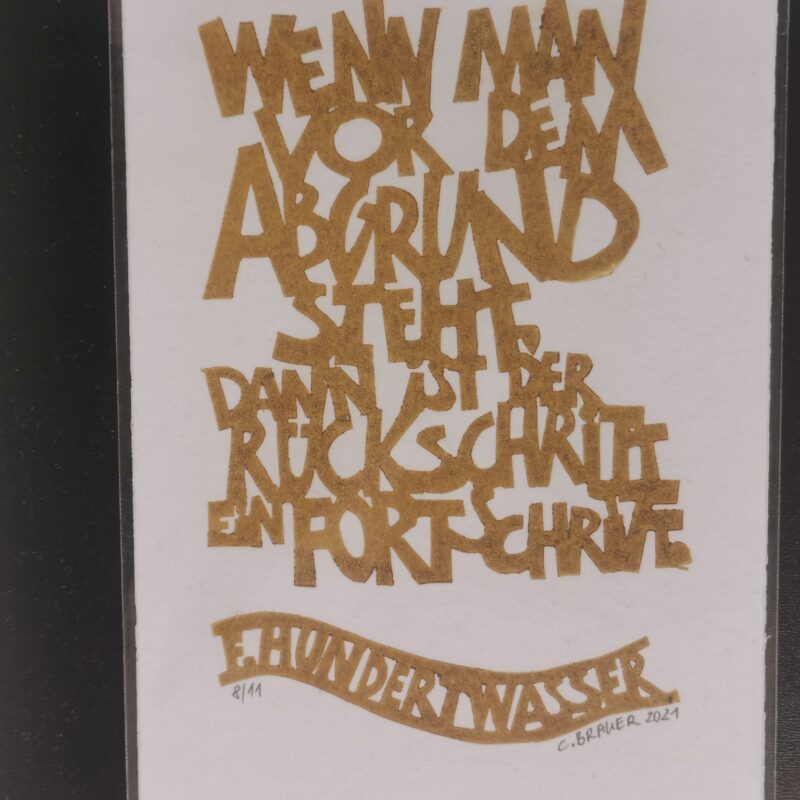 WENN MAN
VOR DEM
ABGRUND
STEHT,
DANN IST DER
RÜCKSCHRITT
EIN FORTSCHRITT.
F. HUNDERTWASSER
8/11
C. BRAUER 2021